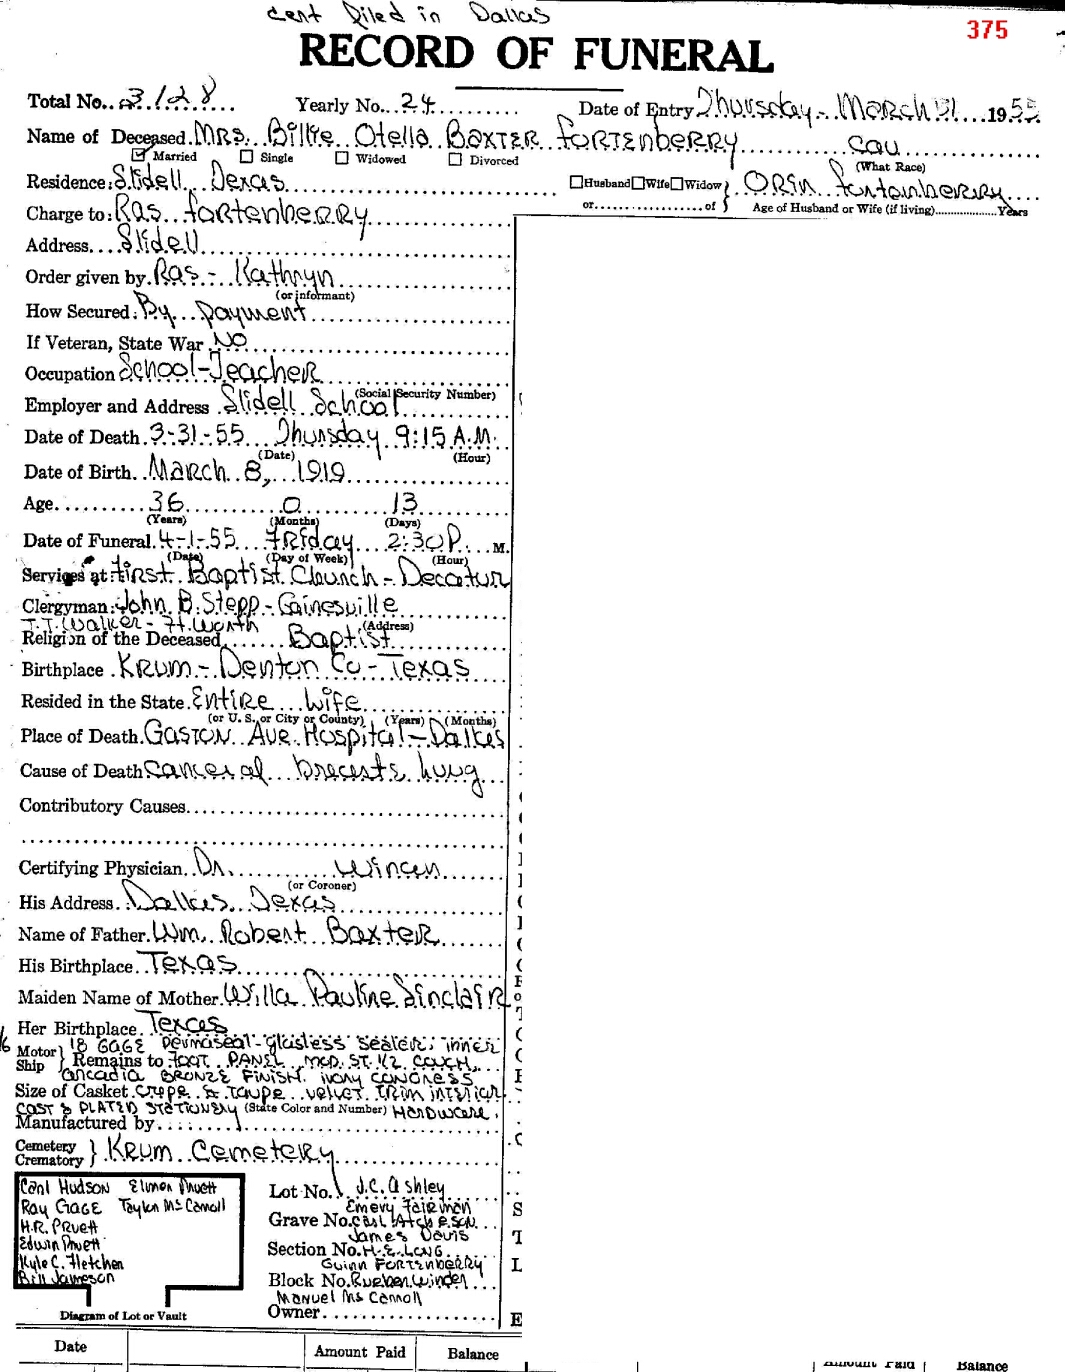 cert filed in Dallas
375
RECORD OF FUNERAL
Total No. 3128 Yearly No. 24 Date of Entry Thursday - March 31 1955
Name of Deceased MRS. Billie Otella BAXTER FORTENBERRY cau
Married Single Widowed Divorced (What Race)
Residence: Slidell, Texas Husband Wife Widow } ORIN Fortenberry
or of } Age of Husband or Wife (if living) Years
Charge to: Ras Fortenberry
Address Slidell
Order given by Ras - Kathryn
(or informant)
How Secured: By payment
If Veteran, State War NO
Occupation School-Teacher
(Social Security Number)
Employer and Address Slidell School
Date of Death 3-31-55 Thursday 9:15 A.M.
(Date) (Hour)
Date of Birth March 8, 1919
Age 36 0 13
(Years) (Months) (Days)
Date of Funeral 4-1-55 Friday 2:30 P. M.
(Date) (Day of Week) (Hour)
Services at: First Baptist Church - Decatur
Clergyman: John B. Stepp - Gainesville
T.J. Walker - Ft. Worth (Address)
Religion of the Deceased Baptist
Birthplace KRUM - Denton Co - Texas
Resided in the State Entire Life
(or U. S. or City or County) (Years) (Months)
Place of Death GASTON Ave. Hospital - Dallas
Cause of Death cancer of breasts, lung
Contributory Causes
Certifying Physician Dr.
(or Coroner)
His Address Dallas Texas
Name of Father Wm. Robert Baxter
His Birthplace Texas
Maiden Name of Mother Willa Pauline Sinclair
Her Birthplace Texas
Motor Ship } 18 GAGE Permaseal - glassless sealer; inner
Remains to FOOT PANEL, MOD. ST. 1/2 COUCH,
Arcadia BRONZE FINISH. ivory CONGRESS
Size of Casket crepe & taupe velvet TRIM interior
CAST & PLATED STATIONERY (State Color and Number) Hardware.
Manufactured by
Cemetery Crematory } Krum Cemetery
Carl Hudson Elmer Pruett
Ray GAGE Taylor McCarroll
H.R. Pruett
Edwin Pruett
Kyle C. Fletcher
Bill Jameson
Diagram of Lot or Vault
Lot No. J.C. Ashley
Emery Fairmon
Grave No. Earl Atcheson
James Davis
Section No. H.E. Long
Guinn FORTENBERRY
Block No. Rueben Winder
Manuel McCarroll
Owner
Date Amount Paid Balance
Amount Paid Balance